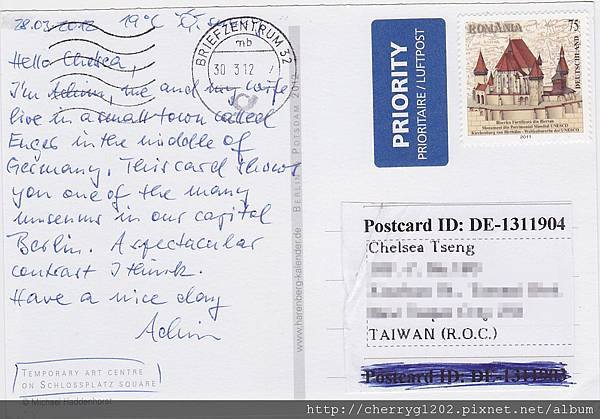 28.03.2012 19°C
Hello Chelsea,
I'm Achim, me and my wife
live in a small town called
Enger in the middle of
Germany. This card shows
you one of the many
museums in our capital
Berlin. A spectacular
contrast I think.
Have a nice day
Achim
TEMPORARY ART CENTRE
ON SCHLOSSPLATZ SQUARE
© Michael Haddenhorst
www.harenberg-kalender.de
BERLIN POTSDAM 2012
BRIEFZENTRUM 32
mb
30 3.12
PRIORITY
PRIORITAIRE / LUFTPOST
ROMÂNIA
75
DEUTSCHLAND
Biserica Fortificată din Biertan
Monument din Patrimoniul Mondial UNESCO
Kirchenburg von Birthälm - Weltkulturerbe der UNESCO
2011
Postcard ID: DE-1311904
Chelsea Tseng
TAIWAN (R.O.C.)
Postcard ID: DE-
http://cherryg1202.pixnet.net/album